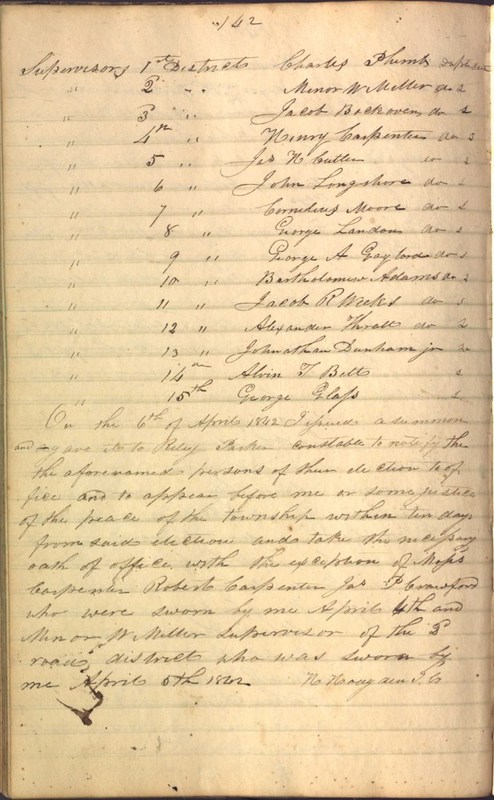 142
Supervisors 1st Districts Charles Plumb
" 2 " Minor W Miller do 2
" 3 " Jacob Bockoven do s
" 4th " Henry Carpenter do s
" 5 " Jas N Cutler s
" 6 " John Longshore do s
" 7 " Cornelius Moore do s
" 8 " George Landon do s
" 9 " George A Gaylord do s
" 10 " Bartholomew Adams do 2
" 11 " Jacob R Weeks do s
" 12 " Alexander Thrall do 2
" 13 " Johnathan Dunham jr 2
" 14th Alvin T Belt s
" 15th George Glass
On the 6th of April 1842 I issued a summon
and gave it to Riley Parker constable to notify the
the aforenamed persons of their election to of
fice and to appear before me or some justice
of the peace of the township within ten days
from said election and take the necessary
oath of office with the exception of Mess
Carpenter Robert Carpenter Jas P Crawford
who were sworn by me April 4th and
Minor W Miller Supervisor of the 2
road district who was sworn by
me April 5th 1842 N